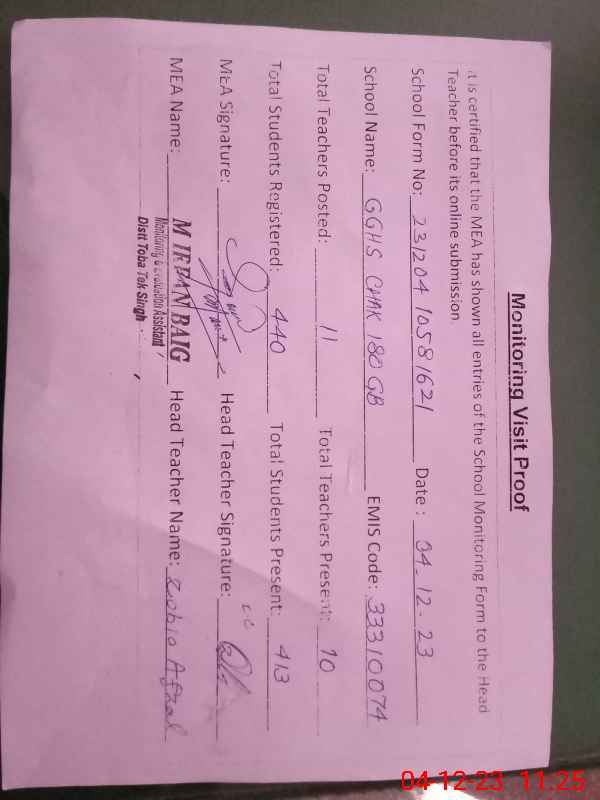 Monitoring Visit Proof
It is certified that the MEA has shown all entries of the School Monitoring Form to the Head
Teacher before its online submission.
School Form No: 231204 10581621 Date : 04-12-23
School Name: GGHS CHAK 180 GB EMIS Code: 33310074
Total Teachers Posted: 11 Total Teachers Present: 10
Total Students Registered: 440 Total Students Present: 413
MEA Signature: Head Teacher Signature:
MEA Name: M IRFAN BAIG Head Teacher Name: Robia Afzal
Monitoring & Evaluation Assistant
Distt Toba Tek Singh
04-12-23 11:25